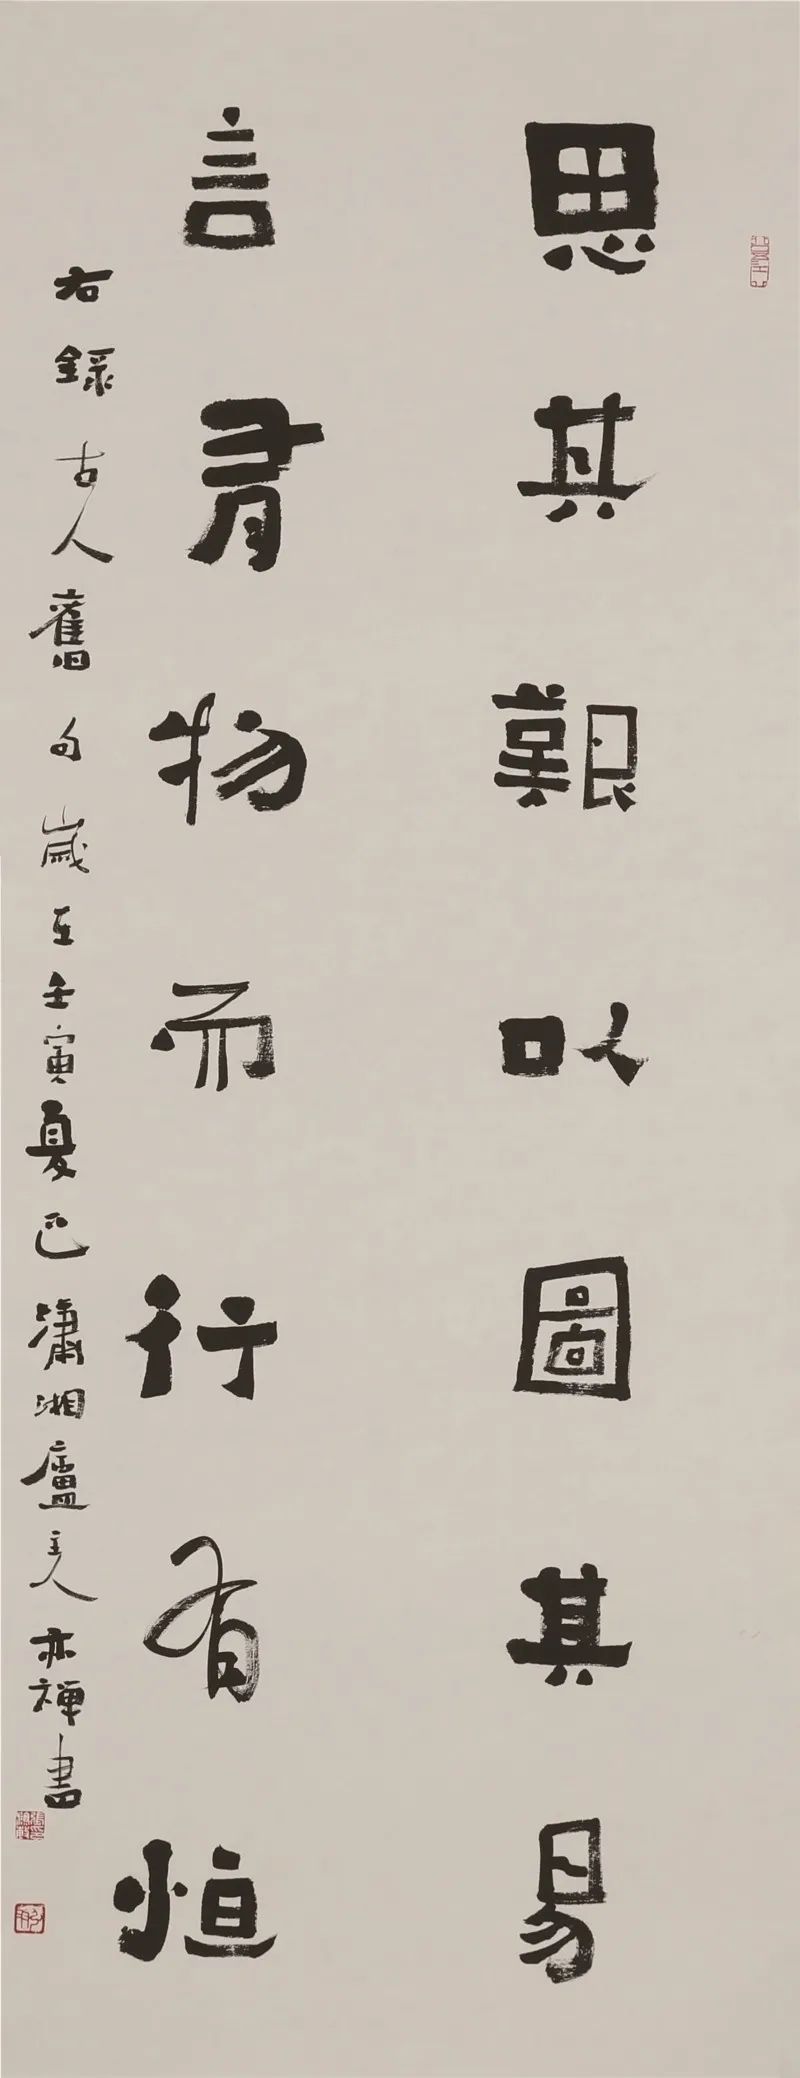 思其艱以圖其易
言有物而行有恒
右錄古人舊句歲在壬寅夏也瀟湘廬主人亦禪書